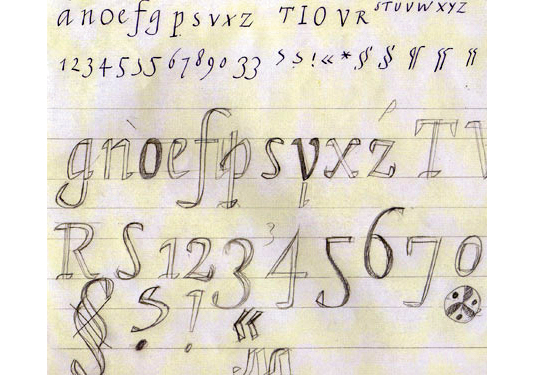 a n o e f g p s v x z T I O V R S T U V W X Y Z
1 2 3 4 5 5 5 6 7 8 9 0 3 3 ? ? ! « * § § ¶ ¶ ¶
g n o e f p s v x z T V
R S 1 2 3 3 4 5 6 7 0
§ ? ! «